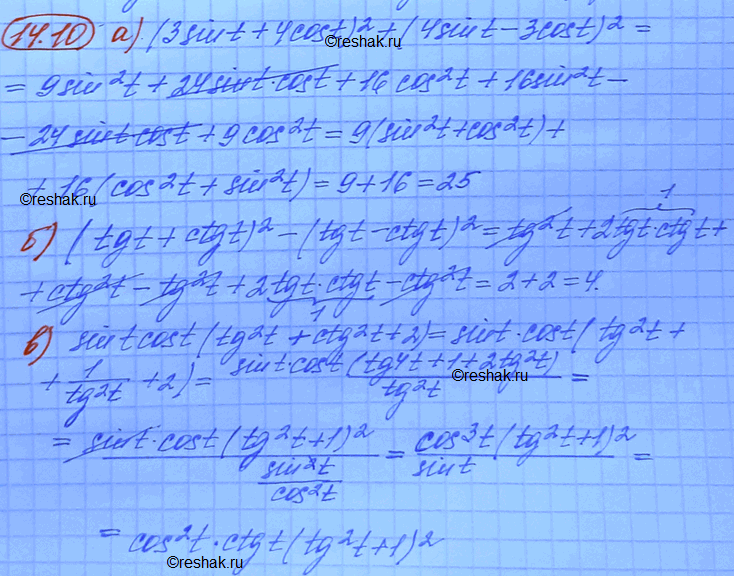 14.10 а) (3sint + 4cost)² + (4sint − 3cost)² =
reshak.ru
= 9sin²t + 24sint·cost + 16cos²t + 16sin²t −
− 24sintcost + 9cos²t = 9(sin²t + cos²t) +
+ 16(cos²t + sin²t) = 9 + 16 = 25
reshak.ru
1
б) (tgt + ctgt)² − (tgt − ctgt)² = tg²t + 2tgt·ctgt +
+ ctg²t − tg²t + 2tgt·ctgt − ctg²t = 2 + 2 = 4.
1
в) sintcost(tg²t + ctg²t + 2) = sint·cost(tg²t +
+ 1/tg²t + 2) = sintcost(tg4t + 1 + 2tg²t)/tg²t =
reshak.ru
= sint·cost(tg²t + 1)²/(sin²t/cos²t) = cos³t(tg²t + 1)²/sint =
= cos²t·ctgt(tg²t + 1)²
reshak.ru